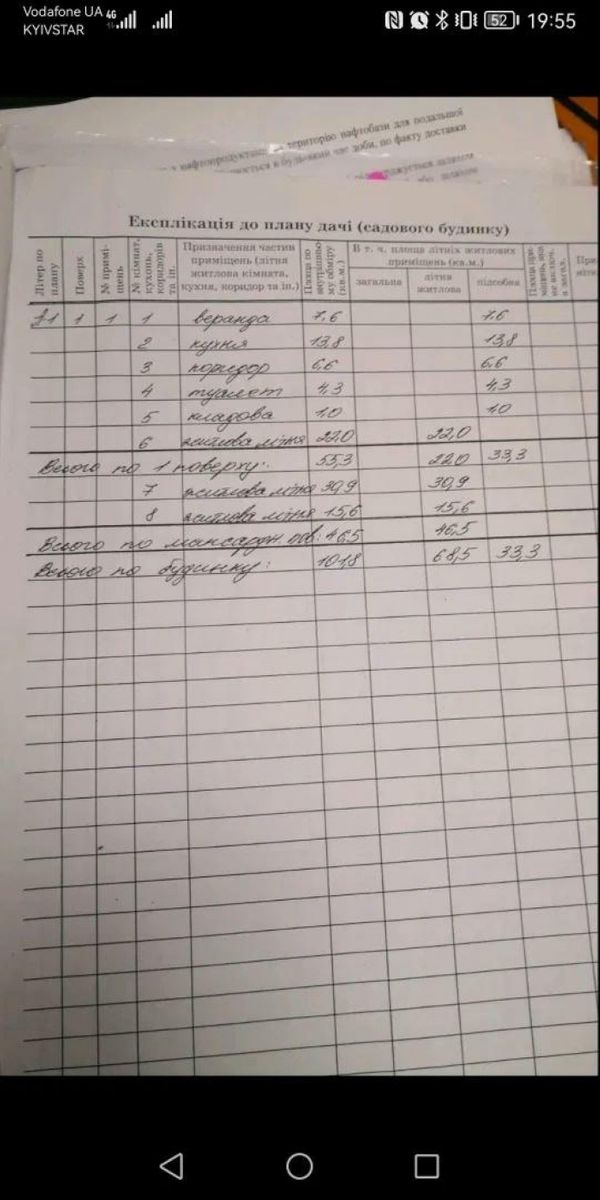 Vodafone UA 4G
KYIVSTAR
52 19:55
територію нафтобази для подальшої
в будь-який час доби, по факту доставки
Експлікація до плану дачі (садового будинку)
Літер по плану
Поверх
№ приміщень
№ кімнат, кухонь, коридорів та ін.
Призначення частин приміщень (літня житлова кімната, кухня, коридор та ін.)
Площа по внутрішньому обміру (кв.м.)
В т. ч. площа літніх житлових приміщень (кв.м.)
загальна
літня житлова
підсобна
1 1 1 веранда 7,6 7,6
2 кухня 13,8 13,8
3 коридор 6,6 6,6
4 туалет 4,3 4,3
5 кладова 1,0 1,0
6 житлова літня 22,0 22,0
Всього по 1 поверху: 55,3 22,0 33,3
7 житлова літня 30,9 30,9
8 житлова літня 15,6 15,6
Всього по мансардн пов: 46,5 46,5
Всього по будинку: 101,8 68,5 33,3